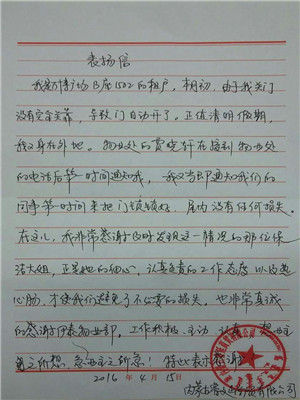 表扬信
我是财博广场B座1502的租户,本月初,由于我关门
没有完全关靠,导致门自动开了。正值清明假期,
我又身在外地。物业处的贾晓轩在接到物业处
的电话后第一时间通知我,我又立即通知我们的
同事第一时间来把门锁锁好,屋内没有任何损失。
在这儿,我非常感谢及时发现这一情况的那位保
洁大姐,正是她的细心,认真负责的工作态度以及热
心肠,才使我们避免了不必要的损失。也非常真诚
的感谢伊泰物业部,工作积极、主动、认真,想业主
之所想,急业主之所急!特此表示感谢
2016年4月15日
内蒙古 有限公司